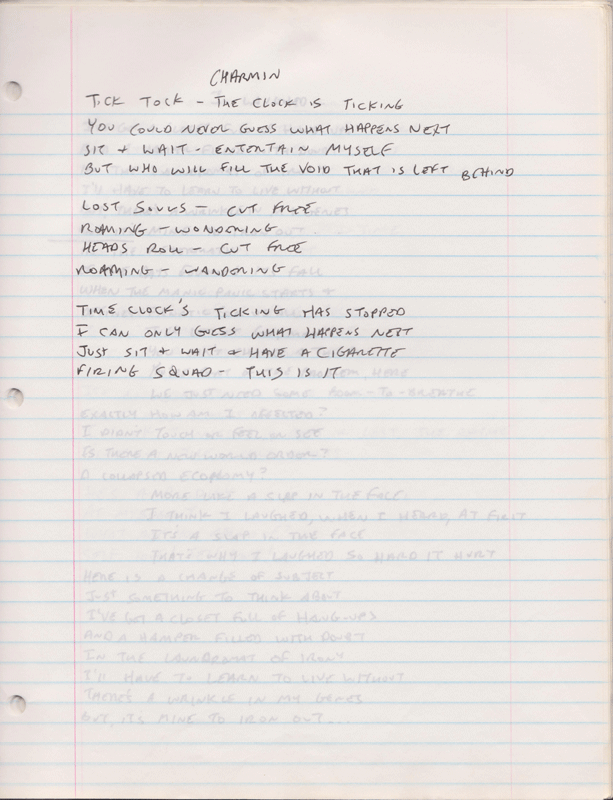 CHARMIN
TICK TOCK - THE CLOCK IS TICKING
YOU COULD NEVER GUESS WHAT HAPPENS NEXT
SIT + WAIT - ENTERTAIN MYSELF
BUT WHO WILL FILL THE VOID THAT IS LEFT BEHIND
I'LL HAVE TO LEARN TO LIVE WITHOUT
LOST SOULS - CUT FREE
ROAMING - WONDERING
HEADS ROLL - CUT FREE
ROAMING - WANDERING
FALL
WHEN THE MANIC PANIC STARTS
TIME CLOCK'S TICKING HAS STOPPED
I CAN ONLY GUESS WHAT HAPPENS NEXT
JUST SIT + WAIT + HAVE A CIGARETTE
FIRING SQUAD - THIS IS IT
HERE
WE JUST NEED SOME ROOM-TO-BREATHE
EXACTLY HOW AM I AFFECTED?
I DIDN'T TOUCH OR FEEL OR SEE
IS THERE A NEW WORLD ORDER?
A COLLAPSED ECONOMY?
MORE LIKE A SLAP IN THE FACE
I THINK I LAUGHED, WHEN I HEARD, AT FIRST
IT'S A SLAP IN THE FACE
THAT'S WHY I LAUGHED SO HARD IT HURT
HERE IS A CHANGE OF SUBJECT
JUST SOMETHING TO THINK ABOUT
I'VE GOT A CLOSET FULL OF HANG-UPS
AND A HAMPER FILLED WITH DOUBT
IN THE LAUNDROMAT OF IRONY
I'LL HAVE TO LEARN TO LIVE WITHOUT
THERE'S A WRINKLE IN MY GENES
BUT, IT'S MINE TO IRON OUT...